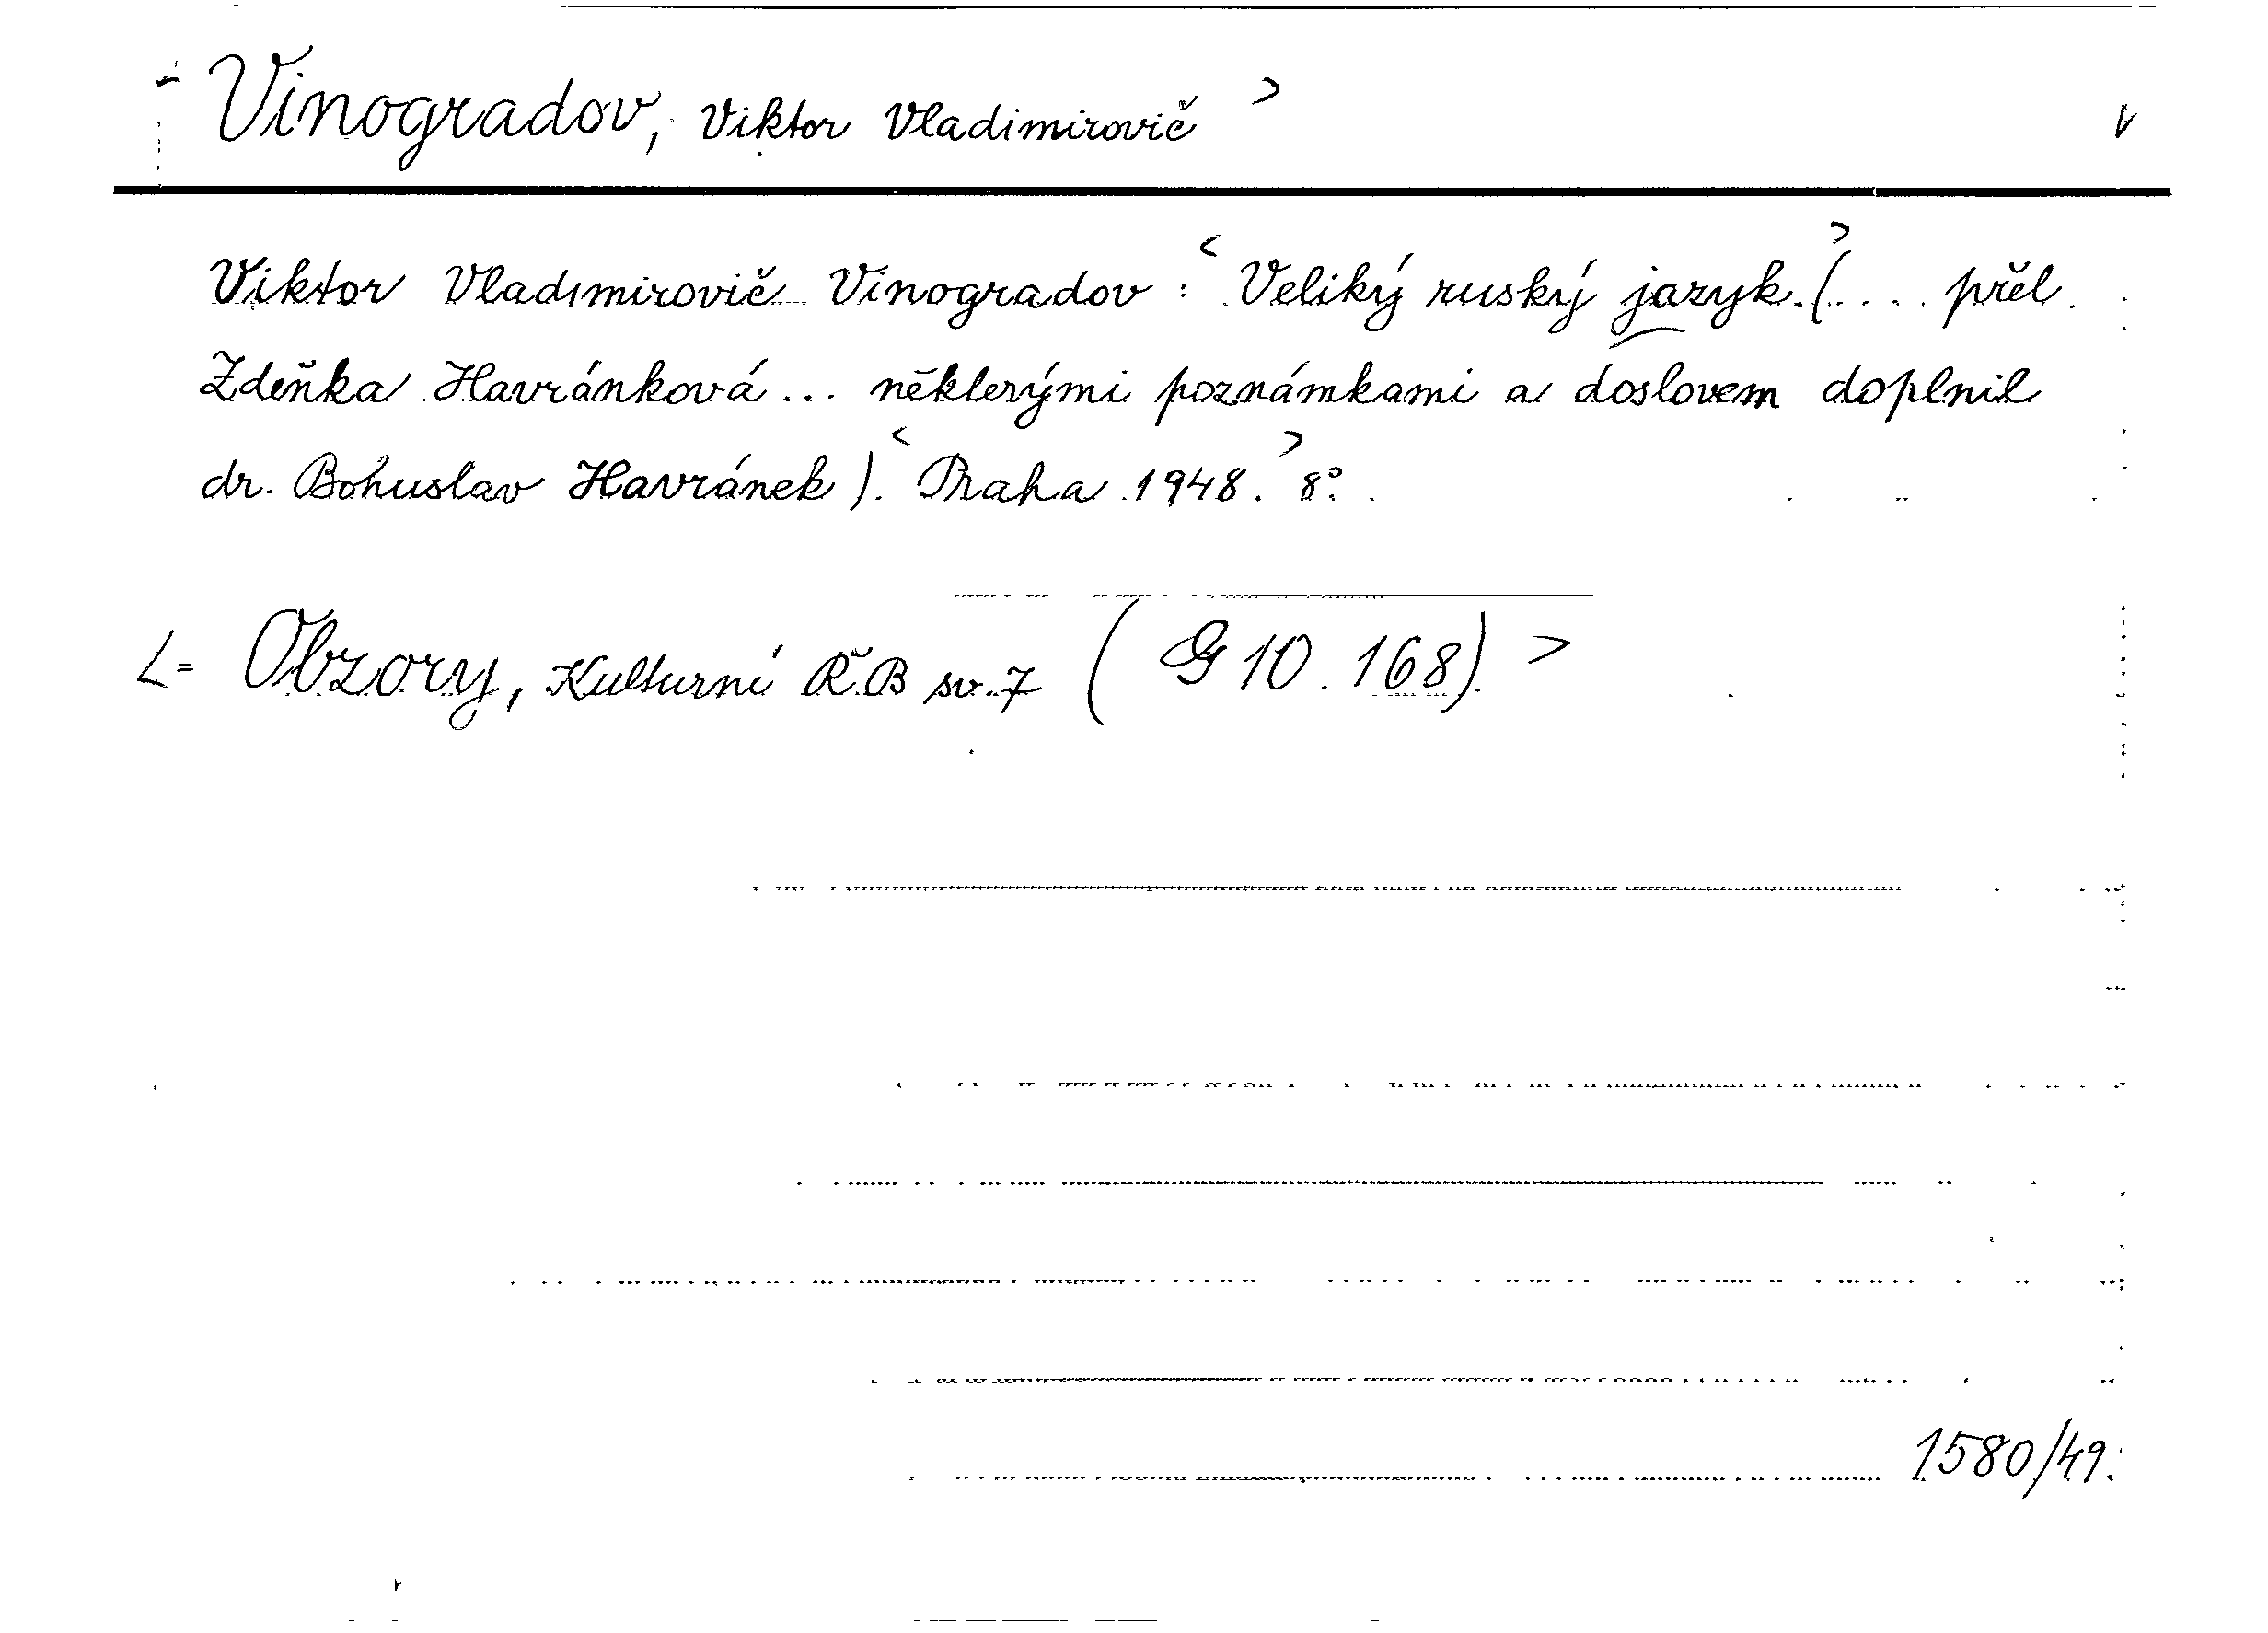 Vinogradov, Viktor Vladimirovič > V
Viktor Vladimirovič Vinogradov : < Veliký ruský jazyk. > (.... přel.
Zdeňka Havránková ... některými poznámkami a doslovem doplnil
dr. Bohuslav Havránek ). < Praha 1948. > 8°.
<= Obzory, Kulturní Ř.B sv. 7 ( G 10.168). >
1580/49.